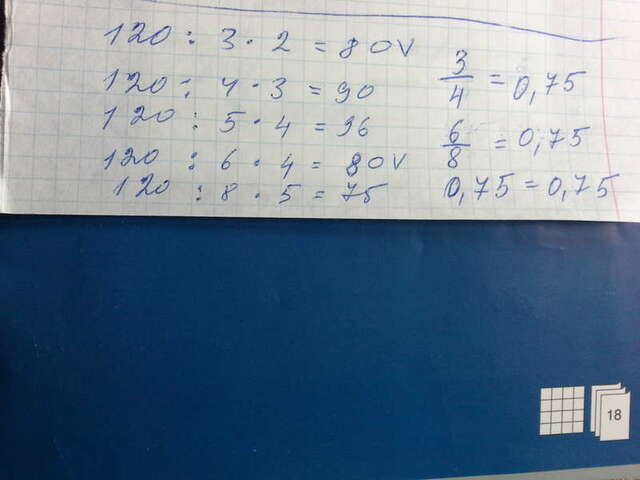 120 : 3 · 2 = 80 V
120 : 4 · 3 = 90
120 : 5 · 4 = 96
120 : 6 · 4 = 80 V
120 : 8 · 5 = 75
3/4 = 0,75
6/8 = 0,75
0,75 = 0,75
18